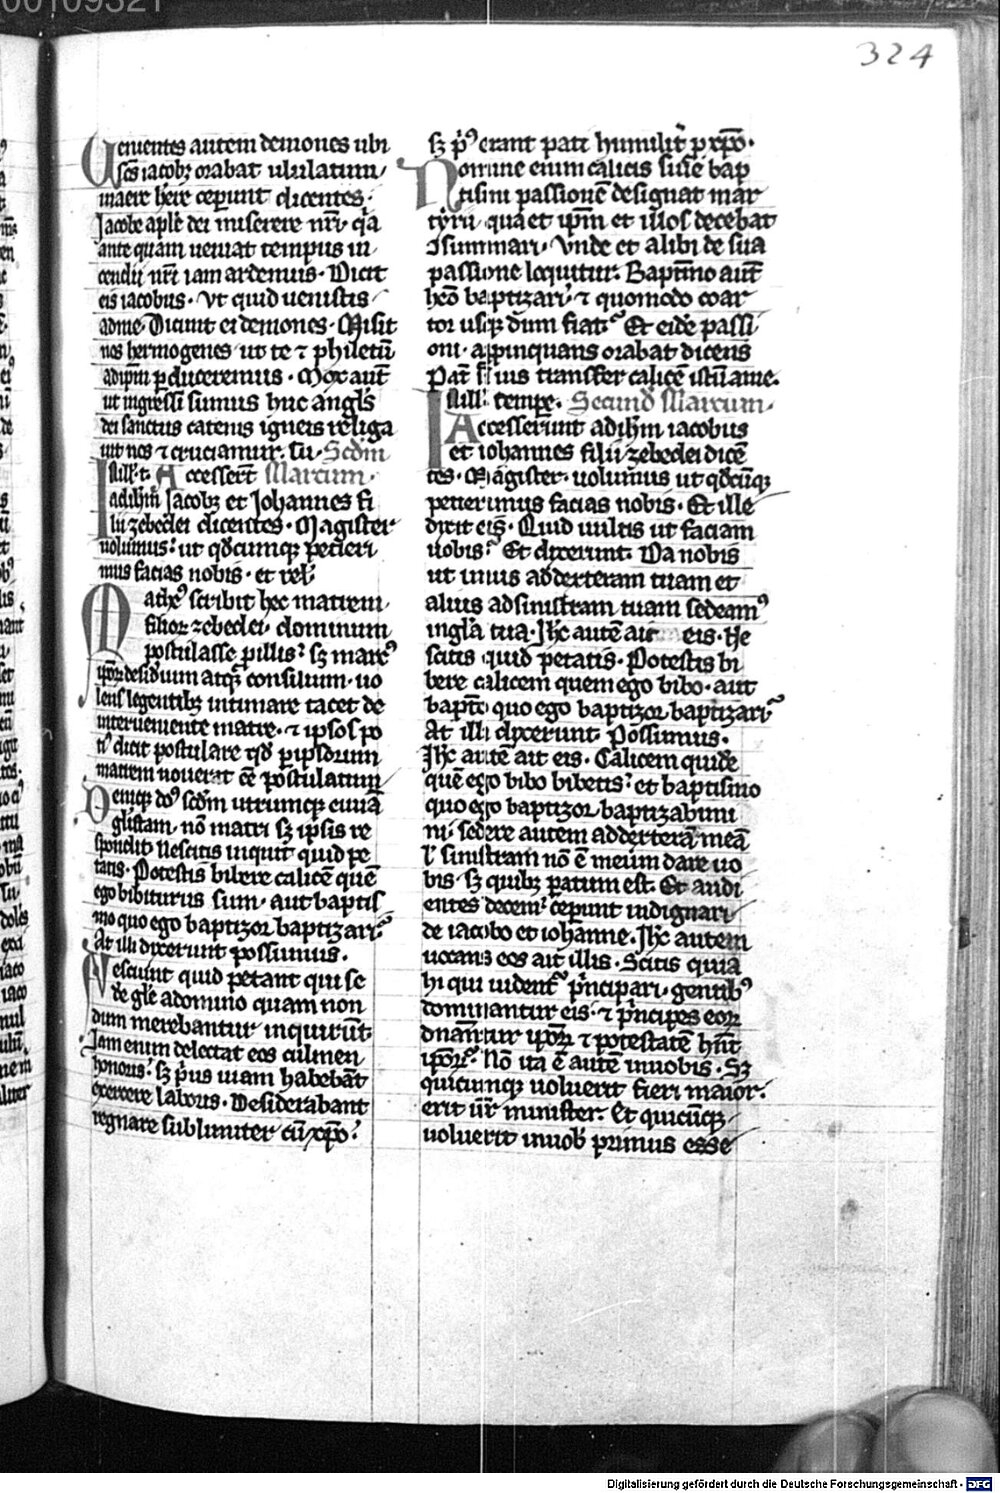 00109321
324
Uenientes autem demones ubi
scs iacobꝫ orabat ululatum
in aere here ceperunt dicentes·
Jacobe aple dei miserere nri· qͣa
ante quam ueniat tempus in
cendii nri iam ardemus· Dicit
eis iacobus· Ut quid uenistis
ad me· Dicunt ei demones· Misit
nos hermogenes ut te ⁊ philetū
ad ipm ꝑduceremus· Mox aut̄
ut ingressi sumus huc angls
dei sanctus catenis igneis religa
uit nos ⁊ cruciamur· Scdm
Jn ill· t· Accesserт̄ Marcum·
ad ihm̄ Jacobꝫ et Johannes fi
lii zebedei dicentes· Magister
uolumus ut qdcumqꝫ petieri
mus facias nobis· et rel·
Matheꝰ scribit hec matrem
filioꝝ zebedei· dominum
postulasse ꝑ illis sꝫ marcꝰ
ipoꝝ desiderium atqꝫ consilium· uo
lens legentibꝫ intimare tacet de
interueniente matre· ⁊ ipsos po
tiꝰ dicit postulare qd ꝑ ipsorum
matrem nouerat ēē postulatum
Deniqꝫ dōs scdm utrumqꝫ euuā
glistam· nō matri sꝫ ipsis re
spondit Nescitis inquit quid pe
tatis· Potestis bibere calicē quē
ego bibiturus sum· aut baptis
mo quo ego baptizor baptizari
At illi dixerunt possumus·
Nesciunt quid petant qui se
de glē a domino quam non
dum merebantur inquirūt·
Jam enim delectat eos culmen
honoris sꝫ pͥus uiam habebāt
exercere laboris· Desiderabant
regnare sublimiter cū xp̄o·
sꝫ pͥꝰ erant pati humilit̄ ꝑ xp̄o·
Nomine enim calicis siue bap
tismi passionē designat mar
tyrii· qua et ipm̄ et illos decebat
ꝯsummari· Unde et alibi de sua
passione loquitur· Baptismo aut̄
hēo baptizari ⁊ quomodo coar
tor usqꝫ dum fiat· Et eidē passi
oni· appinquans orabat dicens
Pat̄ si ius transfer calicē istū a me·
Jn ill· tempe· Secund Marcum·
Accesserunt ad ihm̄ iacobus
et iohannes filii zebedei dicē
tes· Magister· uolumus ut qdcūqꝫ
petierimus facias nobis· Et ille
dixit eis· Quid uultis ut faciam
uobis· Et dixerunt· Da nobis
ut unus ad dexteram tuam et
alius ad sinistram tuam sedeamꝰ
in glīa tua· Jhc autē ait eis· Ne
scitis quid petatis· Potestis bi
bere calicem quem ego bibo· aut
bapte· quo ego baptizor baptizari
At illi dixerunt Possumus·
Jhc autē ait eis· Calicem quidē
quē ego bibo bibetis· et baptismo
quo ego baptizor baptizabimi
ni· sedere autem ad dexterā meā
ł sinistram nō ē meum dare uo
bis· sꝫ quibꝫ paratum est· Et audi
entes decem· ceperunt indignari
de iacobo et iohanne· Jhc autem
uocans eos ait illis· Scitis quia
hi qui uident̄ pͥncipari· gentibꝰ
dominantur eis· ⁊ pͥncipes eoꝝ
dnantur ipoꝝ ⁊ potestatē hn̄t
ipoꝝ· Nō ita ē autē in uobis· Sꝫ
quicunqꝫ uoluerit fieri maior·
erit ur̄ minister· Et quicūqꝫ
uoluerit in uob primus esse
Digitalisierung gefördert durch die Deutsche Forschungsgemeinschaft - DFG